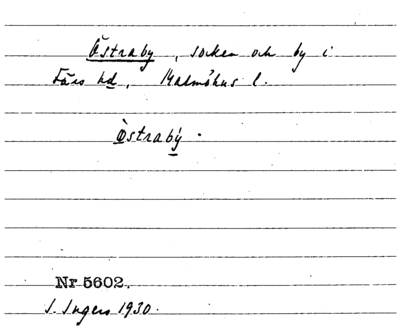 Östraby, socken och by i
Färs hd, Malmöhus l.
Östraby.
Nr 5602.
I. Ingers 1930.